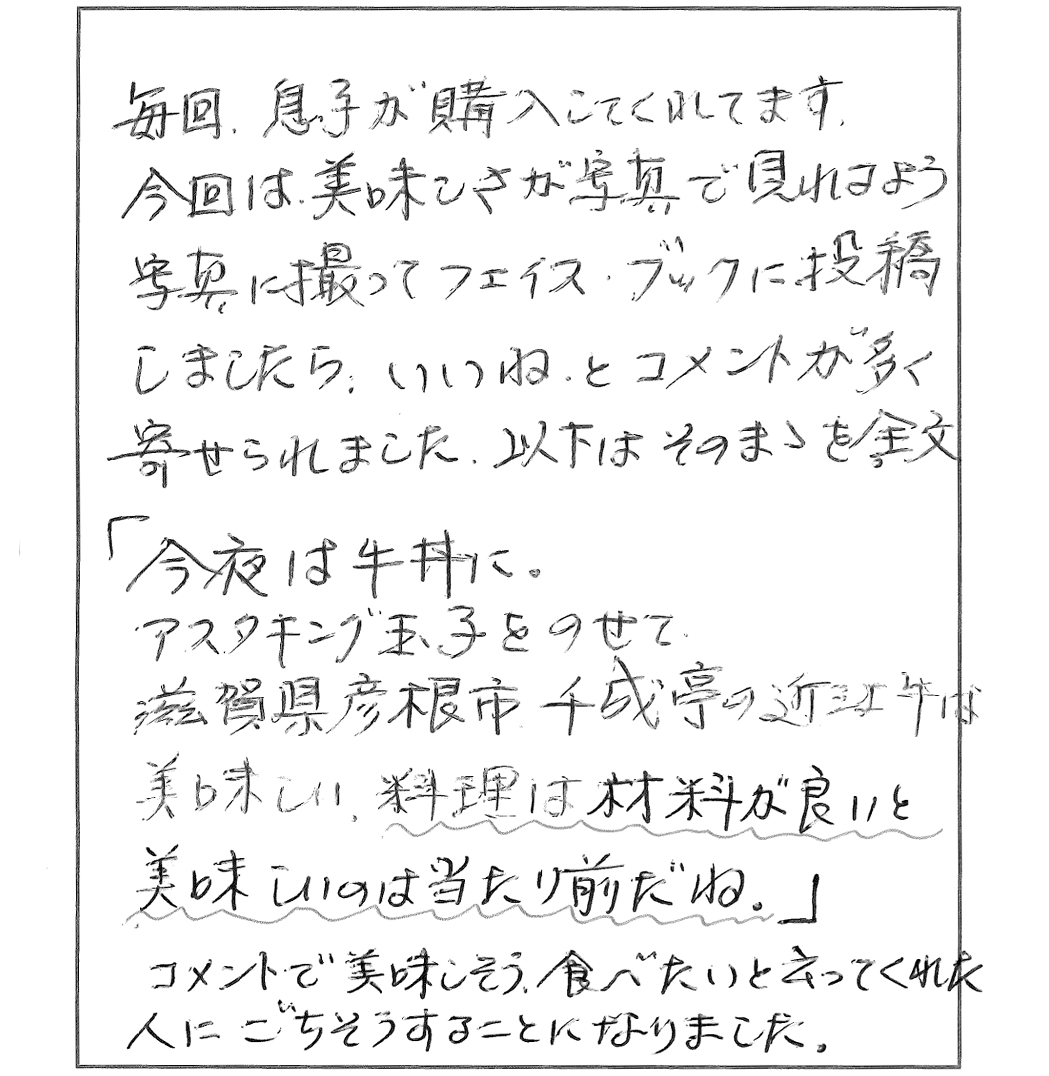 毎回、息子が購入してくれてます、
今回は、美味しさが写真で見れるよう
写真に撮ってフェイス・ブックに投稿
しましたら、いいね、とコメントが多く
寄せられました、以下はそのまゝを全文
「今夜は牛丼に。
アスタキング玉子をのせて、
滋賀県彦根市 千成亭の近江牛は
美味しい、料理は材料が良いと
美味しいのは当たり前だね。」
コメントで美味しそう、食べたいと云ってくれた
人にごちそうすることになりました。